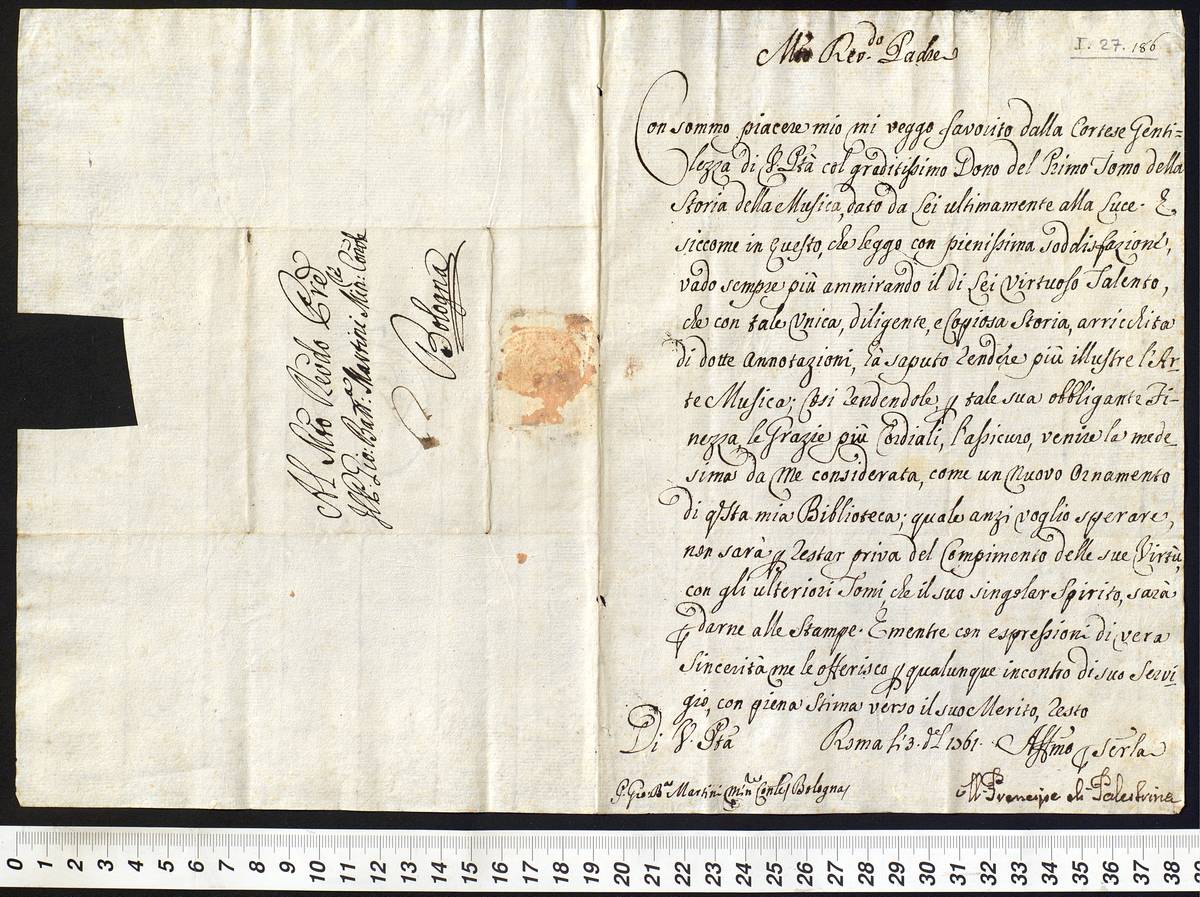 Al Mto Revdo Pre
Gio: Batta Martini Min: Conle
Bologna
I. 27. 186
Mto Revdo Padre
Con sommo piacere mio mi veggo favorito dalla Cortese Genti=
lezza di V. Ptà col graditissimo Dono del Primo Tomo della
Storia della Musica, dato da Lei ultimamente alla Luce. E
siccome in questo, che leggo con pienissima soddisfazione,
vado sempre più ammirando il di Lei Virtuoso Talento,
che con tale Unica, diligente, e Copiosa Storia, arricchita
di dotte annotazioni, hà saputo rendere più illustre l'Ar-
te Musica; Così rendendole p tale sua obbligante Fi-
nezza, le Grazie più Cordiali, l'assicuro, venire la mede-
sima da Me considerata, come un Nuovo Ornamento
di qsta mia Biblioteca; quale anzi voglio sperare,
non sarà p restar priva del Compimento delle sue Virtù,
con gli ulteriori Tomi, che il suo singolar Spirito, sarà
p darne alle Stampe. E mentre con espressioni di vera
Sincerità me le offerisco p qualunque incontro di suo Servi-
gio, con piena Stima verso il suo Merito, resto
Di V. Ptà Roma li 3. del 1761. Affmo p Serla
P. Gio: Bta Martini Min: Conle Bologna
Il Principe di Palestrina
0 1 2 3 4 5 6 7 8 9 10 11 12 13 14 15 16 17 18 19 20 21 22 23 24 25 26 27 28 29 30 31 32 33 34 35 36 37 38